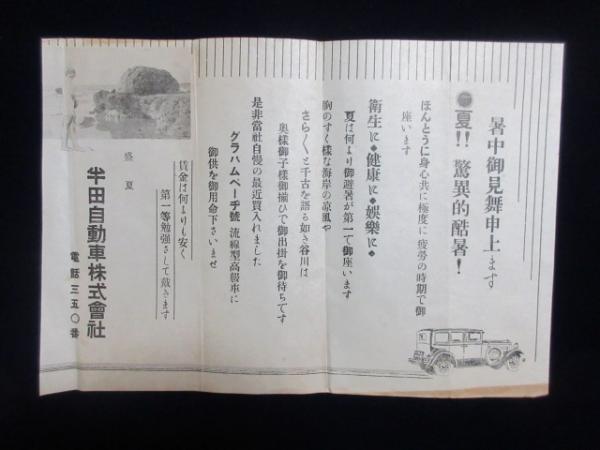 暑中御見舞申上ます
夏!! 驚異的酷暑!
ほんとうに身心共に極度に疲勞の時期で御
座います
衛生に◆健康に◆娯樂に◆
夏は何より御避暑が第一で御座います
胸のすく樣な海岸の凉風や
さら〱と千古を語る如き谷川は
奥樣御子樣御揃ひで御出掛を御待ちです
是非當社自慢の最近買入れました
グラハムペーヂ號 流線型高級車に
御供を御用命下さいませ
賃金は何よりも安く
第一等勉强さして戴きます
盛夏
半田自動車株式會社
電話三五〇番